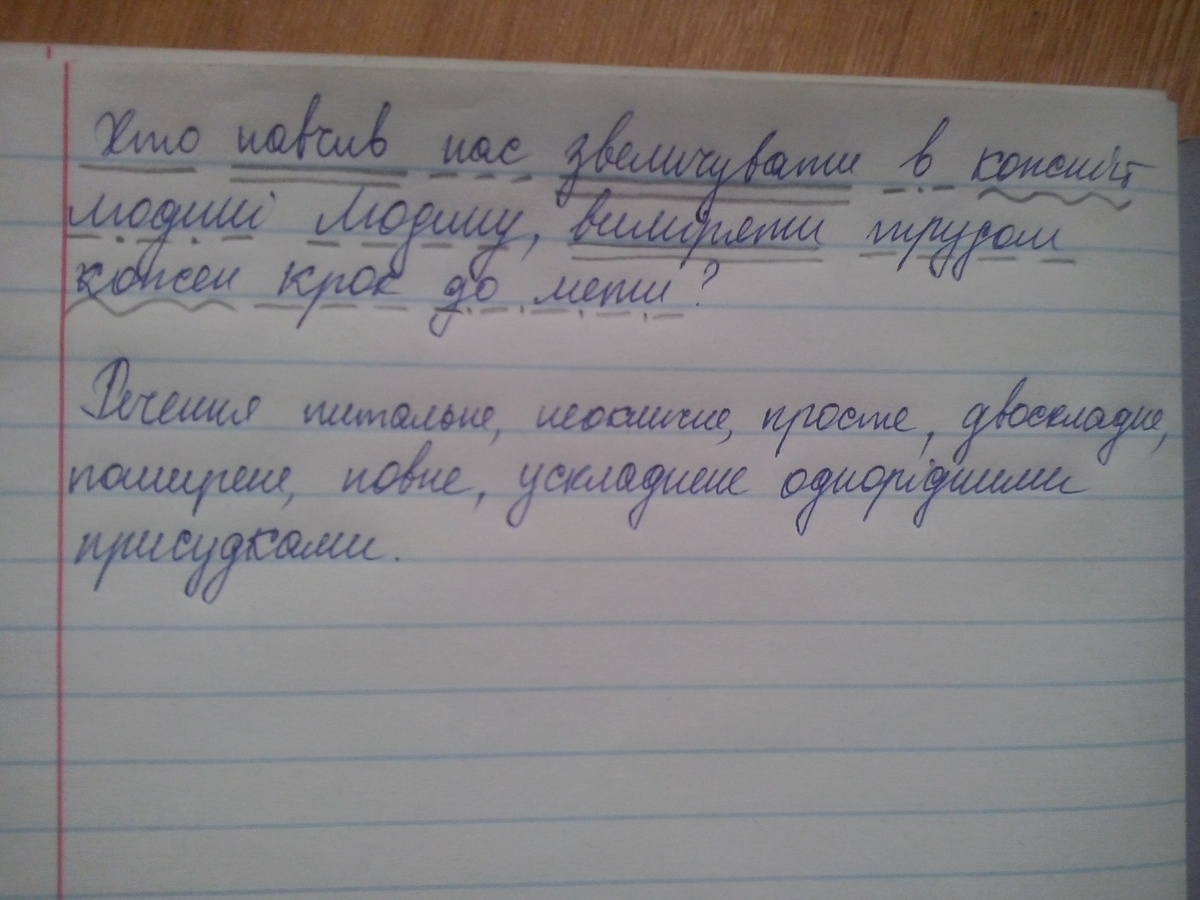 Хто навчив нас звеличувати в кожній
людині Людину, виміряти трудом
кожен крок до мети?
Речення питальне, неокличне, просте, двоскладне,
поширене, повне, ускладнене однорідними
присудками.